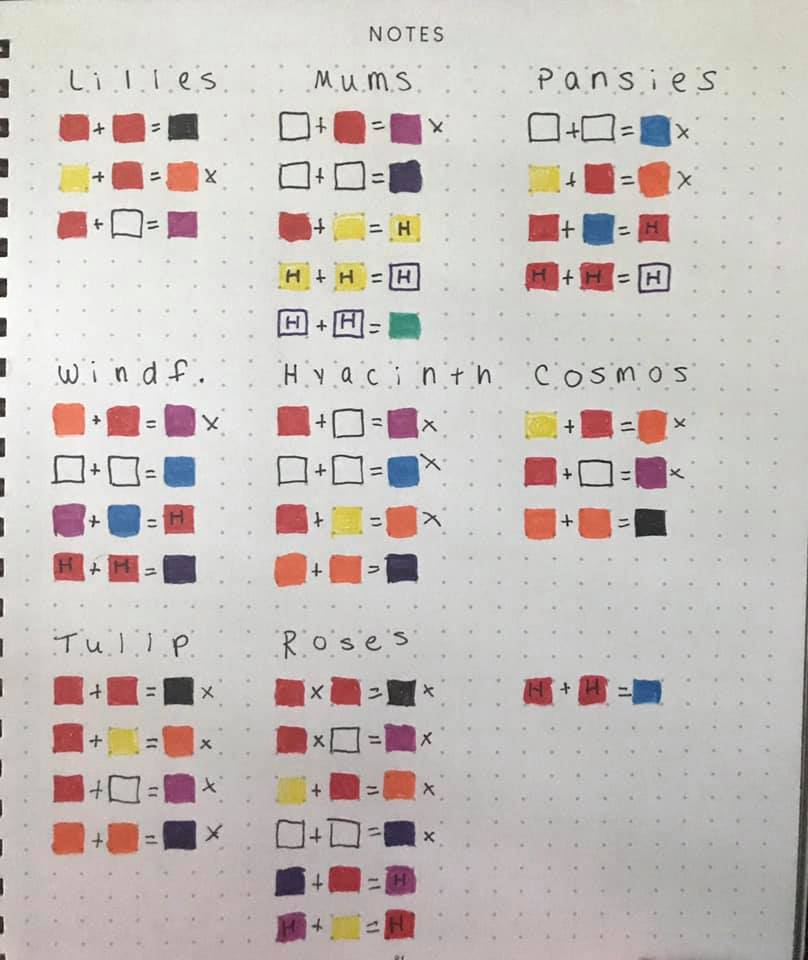 NOTES
Lilies
+ =
+ = x
+ =
Mums
+ = x
+ =
+ = H
H + H = H
H + H =
Pansies
+ = x
+ = x
+ = H
H + H = H
Windf.
+ = x
+ =
+ = H
H + H =
Hyacinth
+ = x
+ = x
+ = x
+ =
Cosmos
+ = x
+ = x
+ =
Tulip
+ = x
+ = x
+ = x
+ = x
Roses
x = x
x = x
+ = x
+ = x
+ = H
H + = H
H + H =